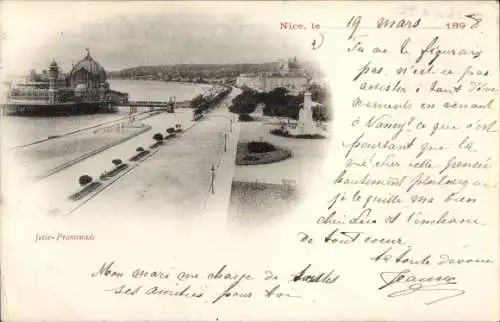 Nice, le 19 mars 1898
Tu ne te figurais
pas, n'est ce pas
assister à tant d'évé-
nements en venant
à Nancy! ce qui est
pourtant que la
vie sur cette
hautement
je te quitte ma bien
chérie et t'embrasse
de tout cœur.
ta toute dévouée
Jeanne
Jetée-Promenade
Mon mari me charge de toutes
ses amitiés pour toi